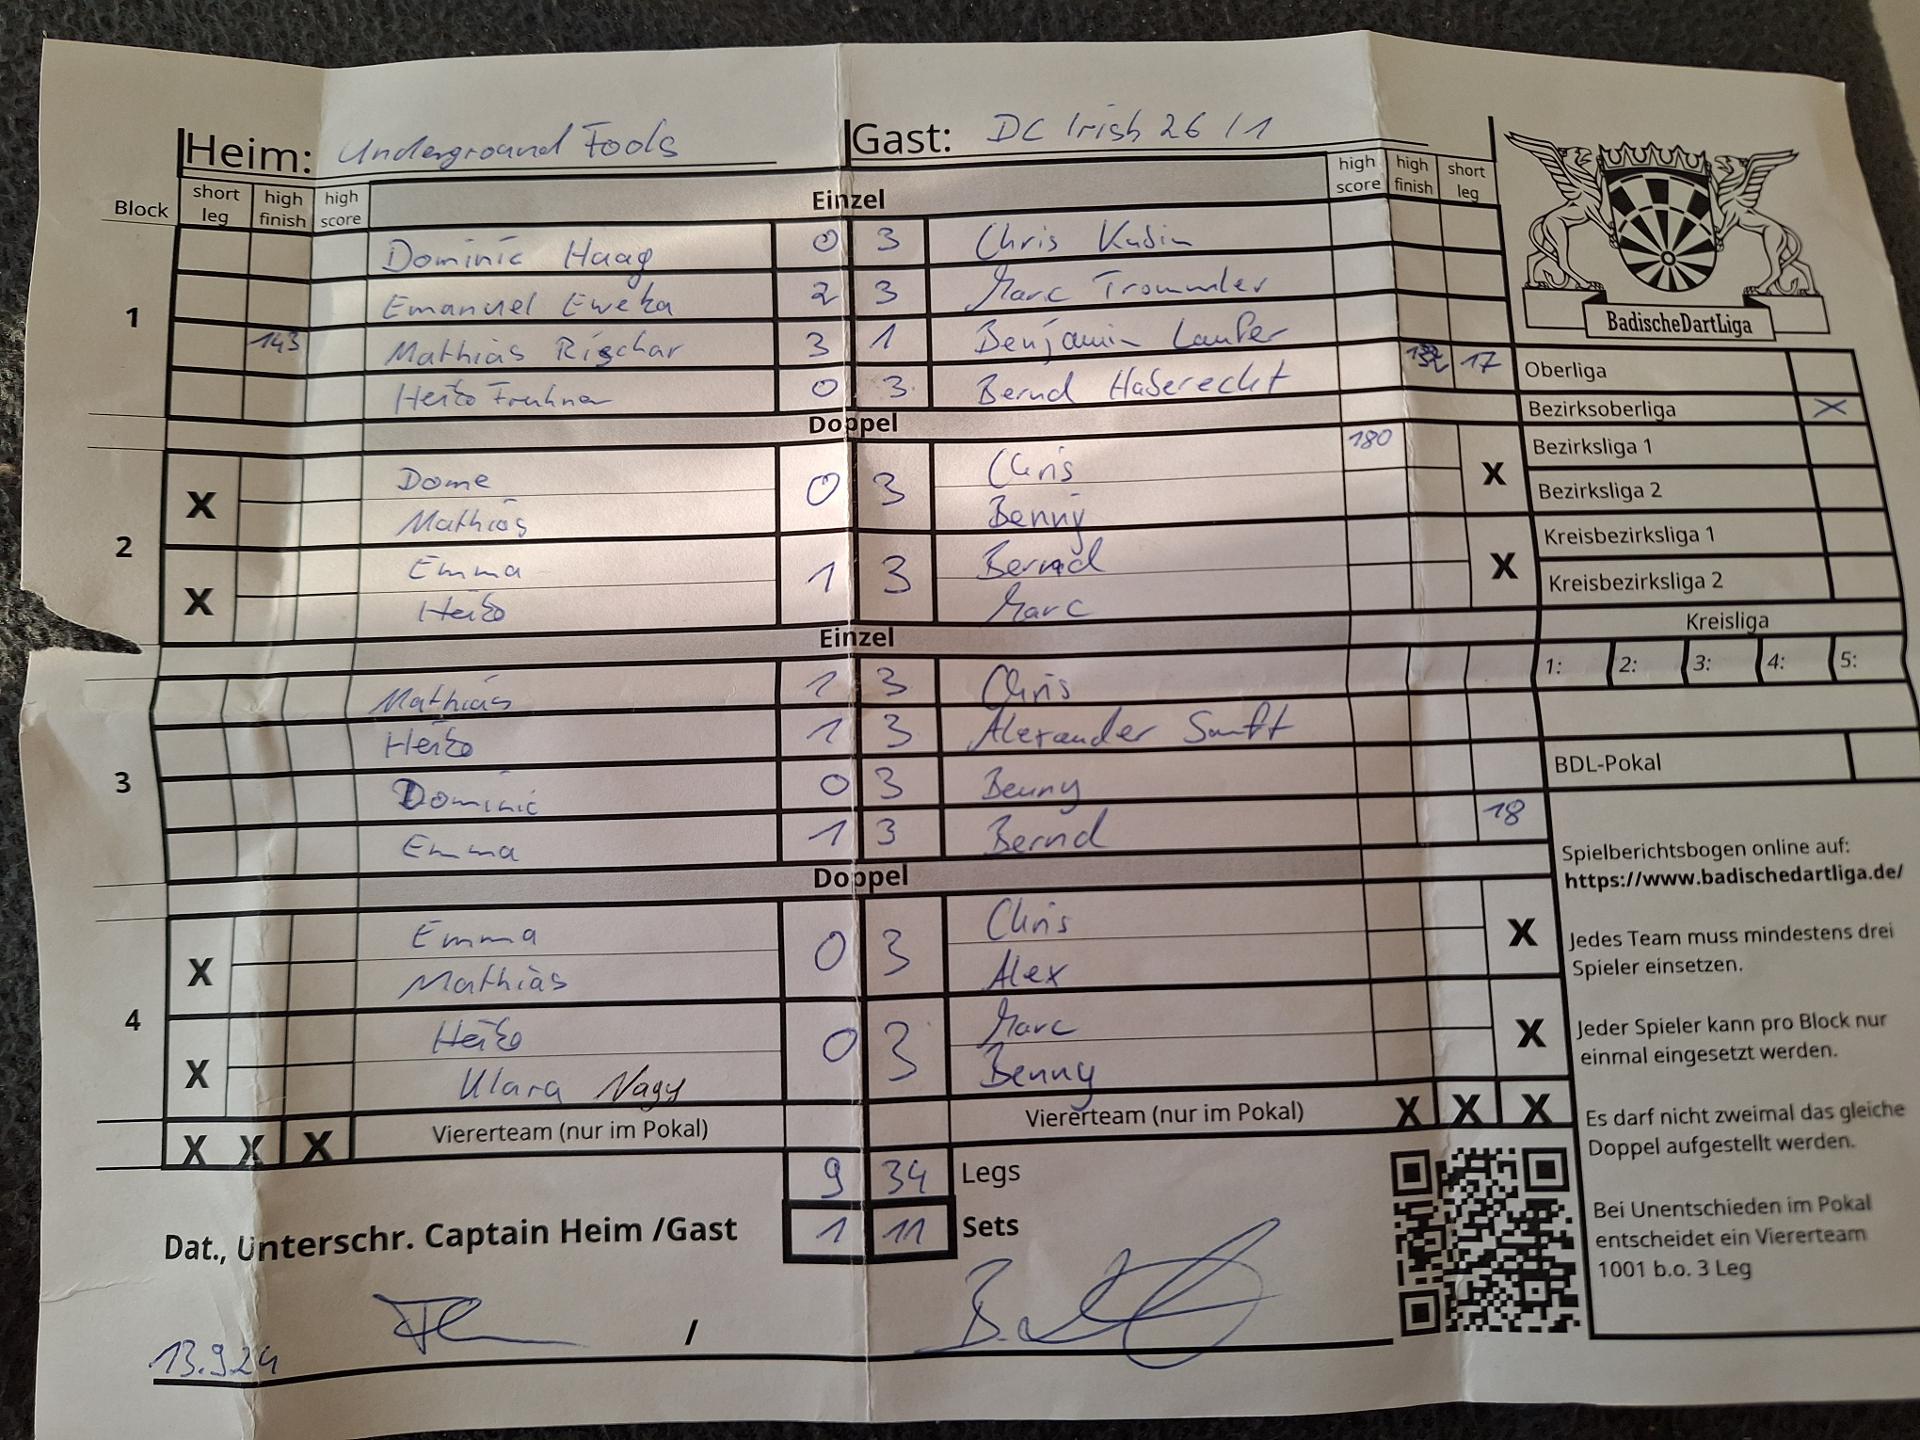 Heim: Underground Fools Gast: DC Irish 26 / 1
Block short leg high finish high score Einzel high score high finish short leg
1
Dominic Haag 0 3 Chris Kusin
Emanuel Eweka 2 3 Marc Trommler
143 Mathias Rischar 3 1 Benjamin Laufer
Heiko Fruhner 0 3 Bernd Haberecht 17
Doppel
2
X Dome 0 3 Chris 180 X
Mathias Benny
X Emma 1 3 Bernd X
Heiko Marc
Einzel
3
Mathias 1 3 Chris
Heiko 1 3 Alexander Sanft
Dominic 0 3 Benny
Emma 1 3 Bernd 18
Doppel
4
X Emma 0 3 Chris X
Mathias Alex
X Heiko 0 3 Marc X
Klara Nagy Benny
X X X Viererteam (nur im Pokal) Viererteam (nur im Pokal) X X X
9 34 Legs
1 11 Sets
Dat., Unterschr. Captain Heim /Gast
13.9.24 /
BadischeDartLiga
Oberliga
Bezirksoberliga X
Bezirksliga 1
Bezirksliga 2
Kreisbezirksliga 1
Kreisbezirksliga 2
Kreisliga
1: 2: 3: 4: 5:
BDL-Pokal
Spielberichtsbogen online auf:
https://www.badischedartliga.de/
Jedes Team muss mindestens drei
Spieler einsetzen.
Jeder Spieler kann pro Block nur
einmal eingesetzt werden.
Es darf nicht zweimal das gleiche
Doppel aufgestellt werden.
Bei Unentschieden im Pokal
entscheidet ein Viererteam
1001 b.o. 3 Leg